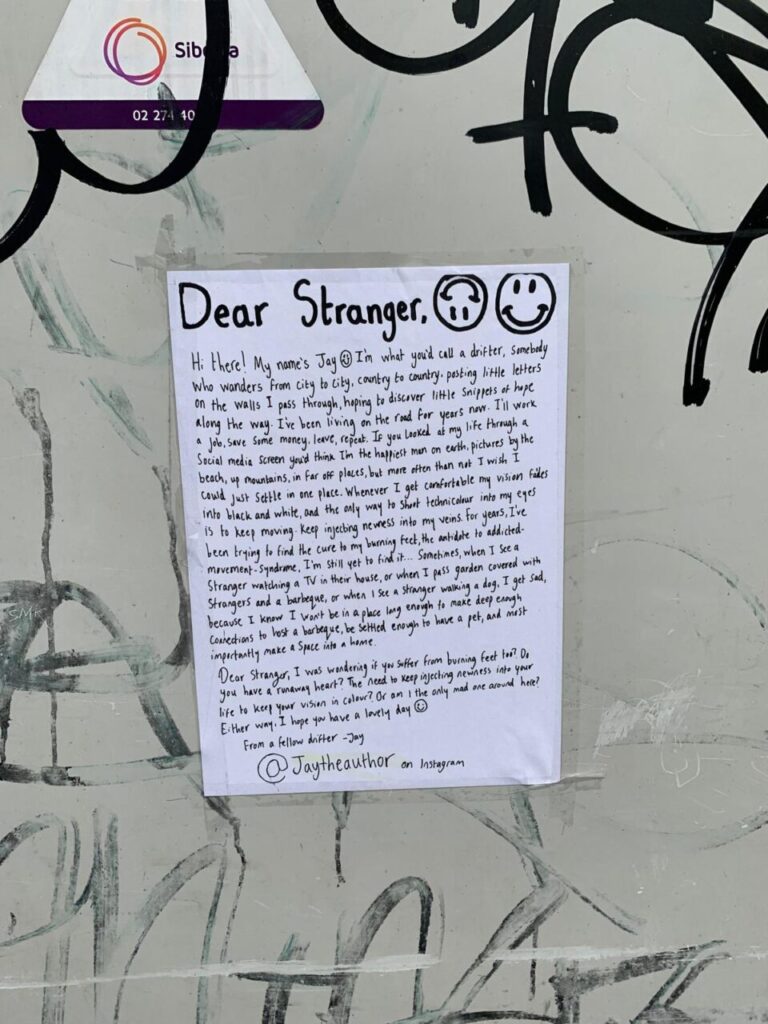 02 274 40
Dear Stranger,
Hi there! My name's Jay I'm what you'd call a drifter, somebody
who wanders from city to city, country to country, posting little letters
on the walls I pass through, hoping to discover little snippets of hope
along the way. I've been living on the road for years now. I'll work
a job, save some money, leave, repeat. If you looked at my life through a
social media screen you'd think I'm the happiest man on earth, pictures by the
beach, up mountains, in far off places, but more often than not I wish I
could just settle in one place. Whenever I get comfortable my vision fades
into black and white, and the only way to shoot technicolour into my eyes
is to keep moving. Keep injecting newness into my veins. For years, I've
been trying to find the cure to my burning feet, the antidote to addicted-
movement-syndrome, I'm still yet to find it... Sometimes, when I see a
Stranger watching a TV in their house, or when I pass garden covered with
Strangers and a barbeque, or when I see a stranger walking a dog. I get sad,
because I know I won't be in a place long enough to make deep enough
connections to host a barbeque, be settled enough to have a pet, and most
importantly make a space into a home.
Dear Stranger, I was wondering if you suffer from burning feet too? Do
you have a runaway heart? The need to keep injecting newness into your
life to keep your vision in colour? Or am I the only mad one around here?
Either way, I hope you have a lovely day
From a fellow drifter -Jay
@Jaytheauthor on Instagram